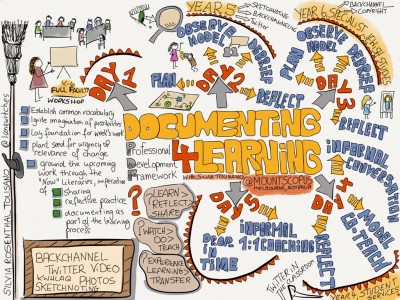 YEAR 5
SKETCHNOTING
BACKCHANNELING
TWITTER
YEAR 4 SPECIALIST ENGLISH STUDIES
BACKCHANNEL
COPYRIGHT
DAY 1
FULL FACULTY
WORKSHOP
Establish common vocabulary
Ignite imagination of possibilities
Lay foundation for week's work
plant seed for urgency of
relevance of change
ground the upcoming
work through the
"Now" Literacies, imperative
of sharing
reflective practice
documenting as
part of the learning
process
DAY 2
PLAN
OBSERVE
MODEL
DEBRIEF
REFLECT
DAY 3
PLAN
OBSERVE
MODEL
DEBRIEF
REFLECT
DOCUMENTING
4 LEARNING
Professional
Development
Framework
WITH SILVIA TOLISANO
@MOUNTSCOPUS
MELBOURNE, AUSTRALIA
DAY 4
INFORMAL
CONVERSATION
MODEL
CO-TEACH
REFLECT
YEAR 4, STUDENT
DAY 5
INFORMAL
PREP.
IN
TIME
1:1 COACHING
TWITTER IN
CLASSROOM
?
LEARN
REFLECT
SHARE
WATCH
DO
TEACH
EXPERIENCE
LEARNING
TRANSFER
BACKCHANNEL
TWITTER VIDEO
PHOTOS
SKETCHNOTING
SILVIA ROSENTHAL TOLISANO
@langwitches